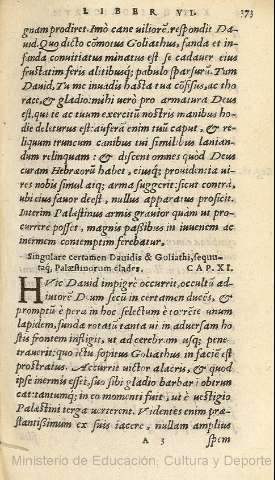 LIBER VI. 373
gnam prodiret. Imò cane uiliorē. respondit Da-
uid. Quo dicto cōmotus Goliathus, fanda et in-
fanda conuitiatus minatus est se cadauer eius
frustatim feris alitibusq; pabulo sparsurū. Tum
Dauid, Tu me inuadis hasta tua cōfisus, ac tho
race, & gladio: mihi uerò pro armatura Deus
est, qui te ac tuum exercitū nostris manibus ho-
die deleturus est: auferā enim tuū caput, & re-
liquum truncum canibus tui similibus lanian-
dum relinquam: & discent omnes quòd Deus
curam Hebræorū habet, eiusq; prouidentia ui-
res nobis simul atq; arma suggerit: sicut contrà,
ubi eius fauor deest, nullus apparatus proficit.
Interim Palæstinus armis grauior quàm ut pro-
currere posset, magnis passibus in iuuenem ac
inermem contemptim ferebatur.
Singulare certamen Dauidis & Goliathi, sequu-
taq; Palæstinorum clades. CAP. XI.
HVic Dauid impigrè occurrit, occultū ad-
iutorē Deum secū in certamen ducēs, &
promptū è pera in hoc selectum è torrēte unum
lapidem, funda rotatū tanta ui in aduersam ho-
stis frontem infligit, ut ad cerebrum usq; pene-
trauerit: quo ictu sopitus Goliathus in faciē est
prostratus. Accurrit uictor alacris, & quod
ipse inermis esset, suo sibi gladio barbari obtrun
cat: tantumq; in eo momenti fuit, ut è uestigio
Palæstini terga uerterent. Videntes enim præ-
stantissimum ex suis iacere, nullam amplius
A 3 spem
Ministerio de Educación, Cultura y Deporte